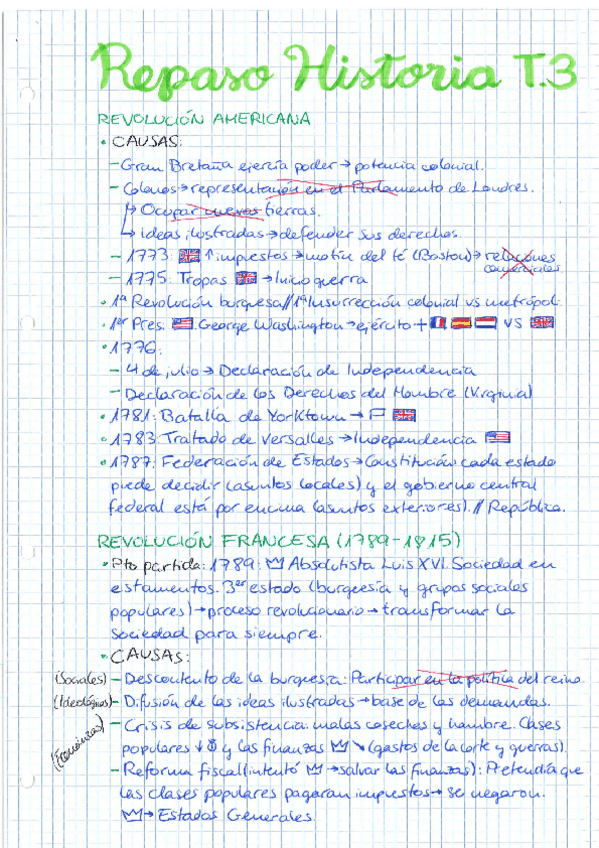 Repaso Historia T.3
REVOLUCIÓN AMERICANA
• CAUSAS:
– Gran Bretaña ejercía poder → potencia colonial.
– Colonos → representación en el Parlamento de Londres.
↳ Ocupar nuevas tierras.
↳ ideas ilustradas → defender sus derechos.
– 1773: ↑ impuestos → motín del té (Boston) → relaciones
comerciales
– 1775: Tropas → Inicio guerra
• 1ª Revolución burguesa // 1ª Insurrección colonial vs metrópol.
• 1er Pres. George Washington → ejército + VS
• 1776:
– 4 de julio → Declaración de Independencia
– Declaración de los Derechos del Hombre (Virginia)
• 1781: Batalla de Yorktown →
• 1783: Tratado de Versalles → Independencia
• 1787: Federación de Estados → Constitución: cada estado
puede decidir (asuntos locales) y el gobierno central
federal está por encima (asuntos exteriores). // República.
REVOLUCIÓN FRANCESA (1789-1815)
• Pto partida: 1789: Absolutista Luis XVI. Sociedad en
estamentos. 3er estado (burguesía y grupos sociales
populares) → proceso revolucionario → transformar la
sociedad para siempre.
• CAUSAS:
(Sociales) – Descontento de la burguesía: Participar en la política del reino.
(Ideológicas) – Difusión de las ideas ilustradas → base de las demandas.
(Económicas) – Crisis de subsistencia: malas cosechas y hambre. Clases
populares ↓ $ y las finanzas ↘ (gastos de la corte y guerras).
– Reforma fiscal (intentó → salvar las finanzas): Pretendía que
las clases populares pagaran impuestos → se negaron.
→ Estados Generales.